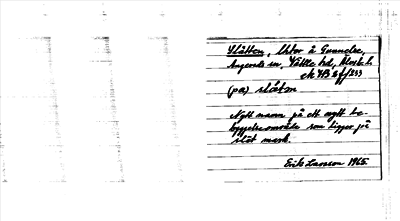 Slätten, Utbor å Gunnelse,
Angereds sn, Vättle hd,
ek YB 2 f/233
(på) slätən
Nytt namn på ett nytt be-
byggelseområde som ligger på
slät mark.
Erik Larsson 1965.